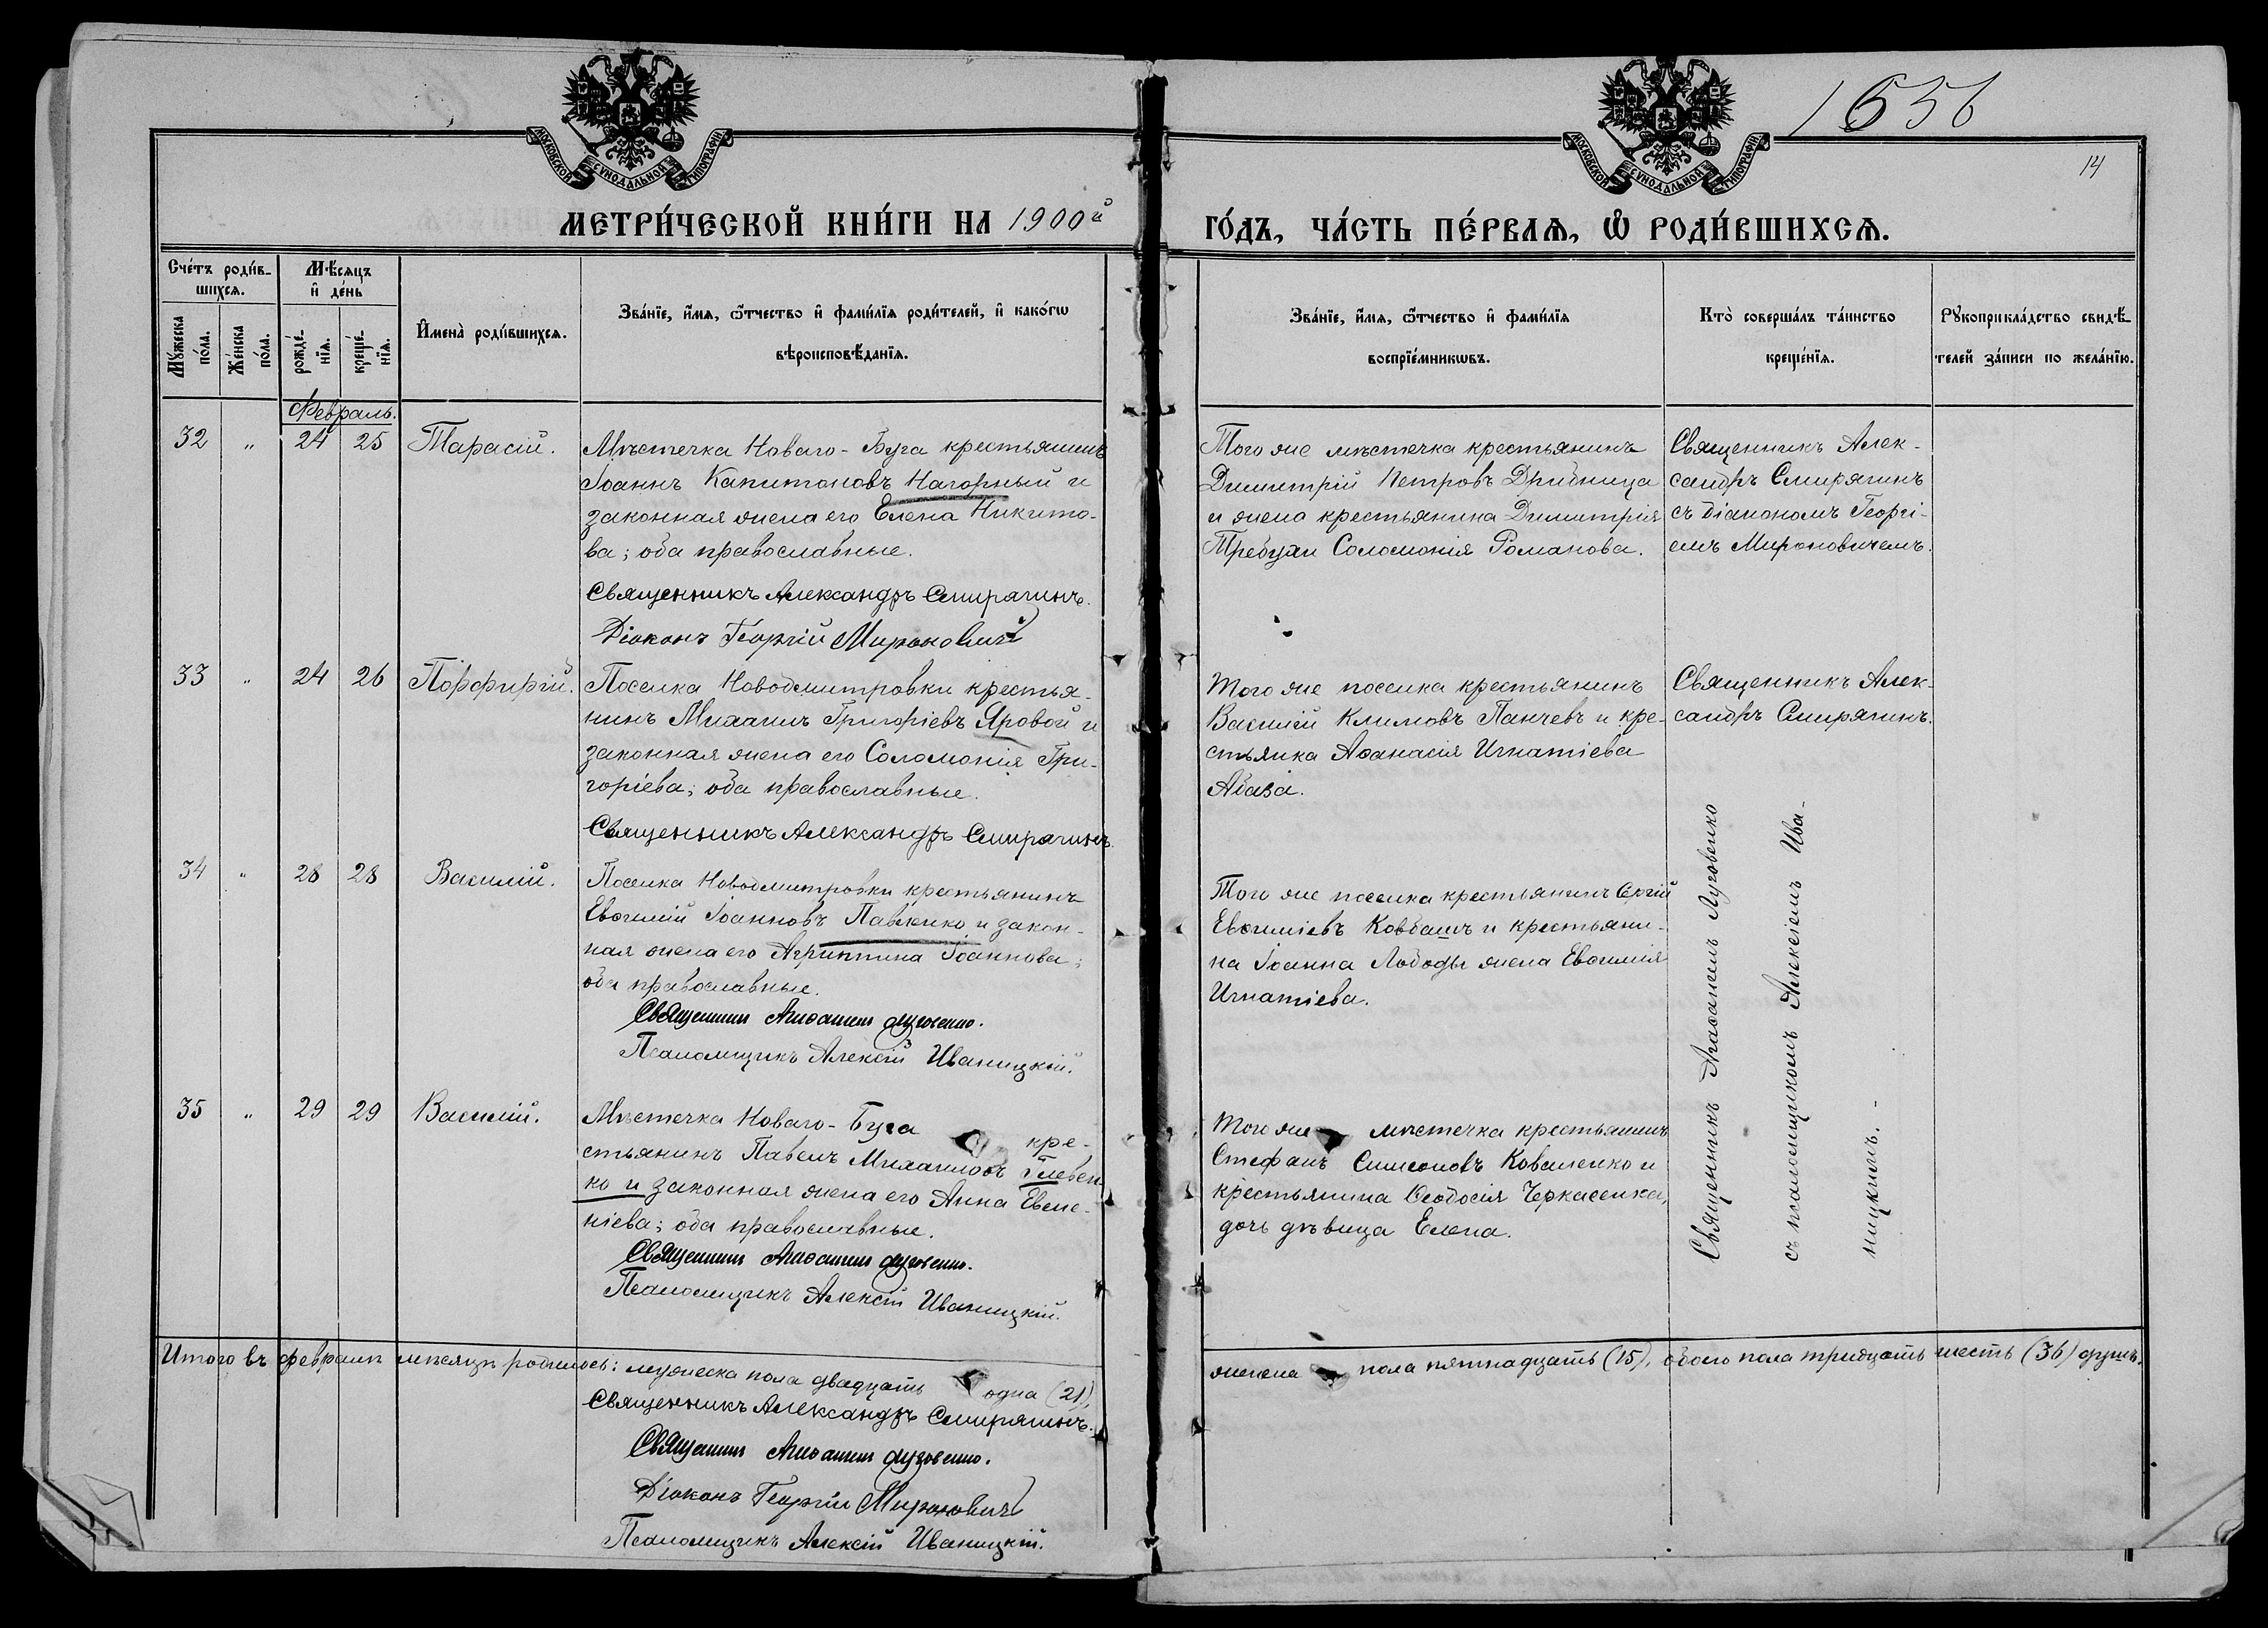 1656
14
МОСКОВСКОЙ СѴНОДАЛЬНОЙ ТИПОГРАФІИ
МОСКОВСКОЙ СѴНОДАЛЬНОЙ ТИПОГРАФІИ
МЕТРИ́ЧЕСКОЙ КНИ́ГИ НА 1900й
ГО́ДЪ, ЧА́СТЬ ПЕ́РВАѦ, Ѡ҆ РОДИ́ВШИХСѦ.
Сче́тъ роди́в-
шихсѧ.
Мꙋ́жеска
по́ла.
Же́нска
по́ла.
Мѣ́сѧцъ
и҆ де́нь
рожде́-
нїѧ.
креще́-
нїѧ.
И҆мена̀ роди́вшихсѧ.
Зва́нїе, и҆́мѧ, ѻ҆́тчество и҆ фами́лїѧ роди́телей, и҆ како́гѡ
вѣроисповѣ́данїѧ.
Зва́нїе, и҆́мѧ, ѻ҆́тчество и҆ фами́лїѧ
воспрїе́мникѡвъ.
Кто̀ соверша́лъ та́инство
креще́нїѧ.
Рꙋкоприкла́дство свидѣ́-
телей за́писи по жела́нїю.
Февраль.
32 „ 24 25 Тарасій.
Мѣстечка Новаго-Буга крестьянинъ
Іоаннъ Капитоновъ Нагорный и
законная жена его Елена Никито-
ва; оба православные.
Священникъ Александръ Смирягинъ.
Діаконъ Георгій Мироновичъ
Того же мѣстечка крестьянинъ
Димитрій Петровъ Дрибница
и жена крестьянина Димитрія
Требухи Соломонія Романова.
Священникъ Алек-
сандръ Смирягинъ
съ діакономъ Георгі-
емъ Мироновичемъ.
33 „ 24 26 Порфирій.
Поселка Новодмитровки крестья-
нинъ Михаилъ Григоріевъ Яровой и
законная жена его Соломонія Гри-
горіева; оба православные.
Священникъ Александръ Смирягинъ.
Того же поселка крестьянинъ
Василій Климовъ Панчевъ и кре-
стьянка Аѳанасія Игнатіева
Абаза.
Священникъ Алек-
сандръ Смирягинъ.
34 „ 28 28 Василій.
Поселка Новодмитровки крестьянинъ
Евѳимій Іоанновъ Павленко и закон-
ная жена его Агриппина Іоаннова;
оба православные.
Священникъ Агаѳангелъ Луговенко.
Псаломщикъ Алексій Иваницкій.
Того же поселка крестьянинъ Сергій
Евѳиміевъ Ковбашъ и крестьяни-
на Іоанна Лободы жена Евѳимія
Игнатіева.
Священникъ Агаѳангелъ Луговенко
съ псаломщикомъ Алексіемъ Ива-
ницкимъ.-
35 „ 29 29 Василій.
Мѣстечка Новаго-Буга кре-
стьянинъ Павелъ Михаиловъ Глевен-
ко и законная жена его Анна Евге-
ніева; оба православные.
Священникъ Агаѳангелъ Луговенко.
Псаломщикъ Алексій Иваницкій.
Того же мѣстечка крестьянинъ
Стефанъ Симеоновъ Коваленко и
крестьянина Ѳеодосія Черкасенка,
дочь дѣвица Елена.
Итого въ февралѣ мѣсяцѣ родилось: мужеска пола двадцать одна (21),
женска пола пятнадцать (15), обоего пола тридцать шесть (36) душъ.
Священникъ Александръ Смирягинъ.
Священникъ Агаѳангелъ Луговенко.
Діаконъ Георгій Мироновичъ
Псаломщикъ Алексій Иваницкій.